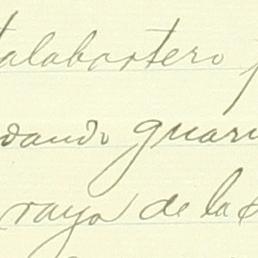 talabartero
dando guarn
raya de la